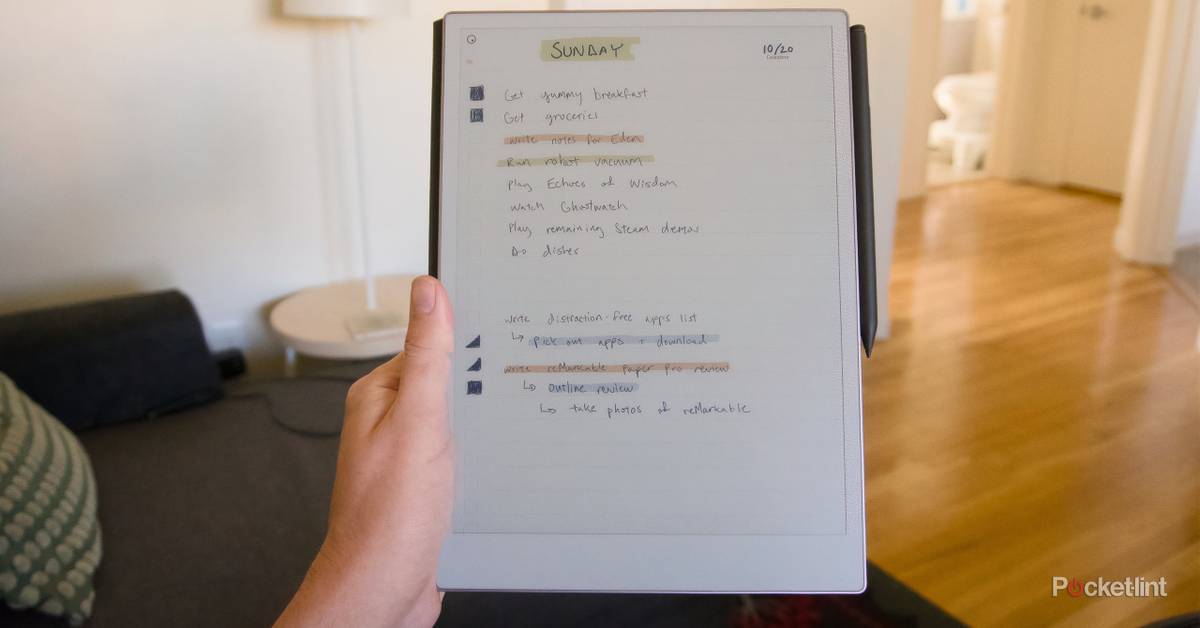 SUNDAY
10/20
Get yummy breakfast
Get groceries
Write notes for Eden
Run robot vacuum
Play Echoes of Wisdom
Watch Ghostwatch
Play remaining Steam demos
Do dishes
Write distraction-free apps list
↳ Pick out apps + download
Write reMarkable Paper Pro review
↳ Outline review
↳ take photos of reMarkable
Pocketlint